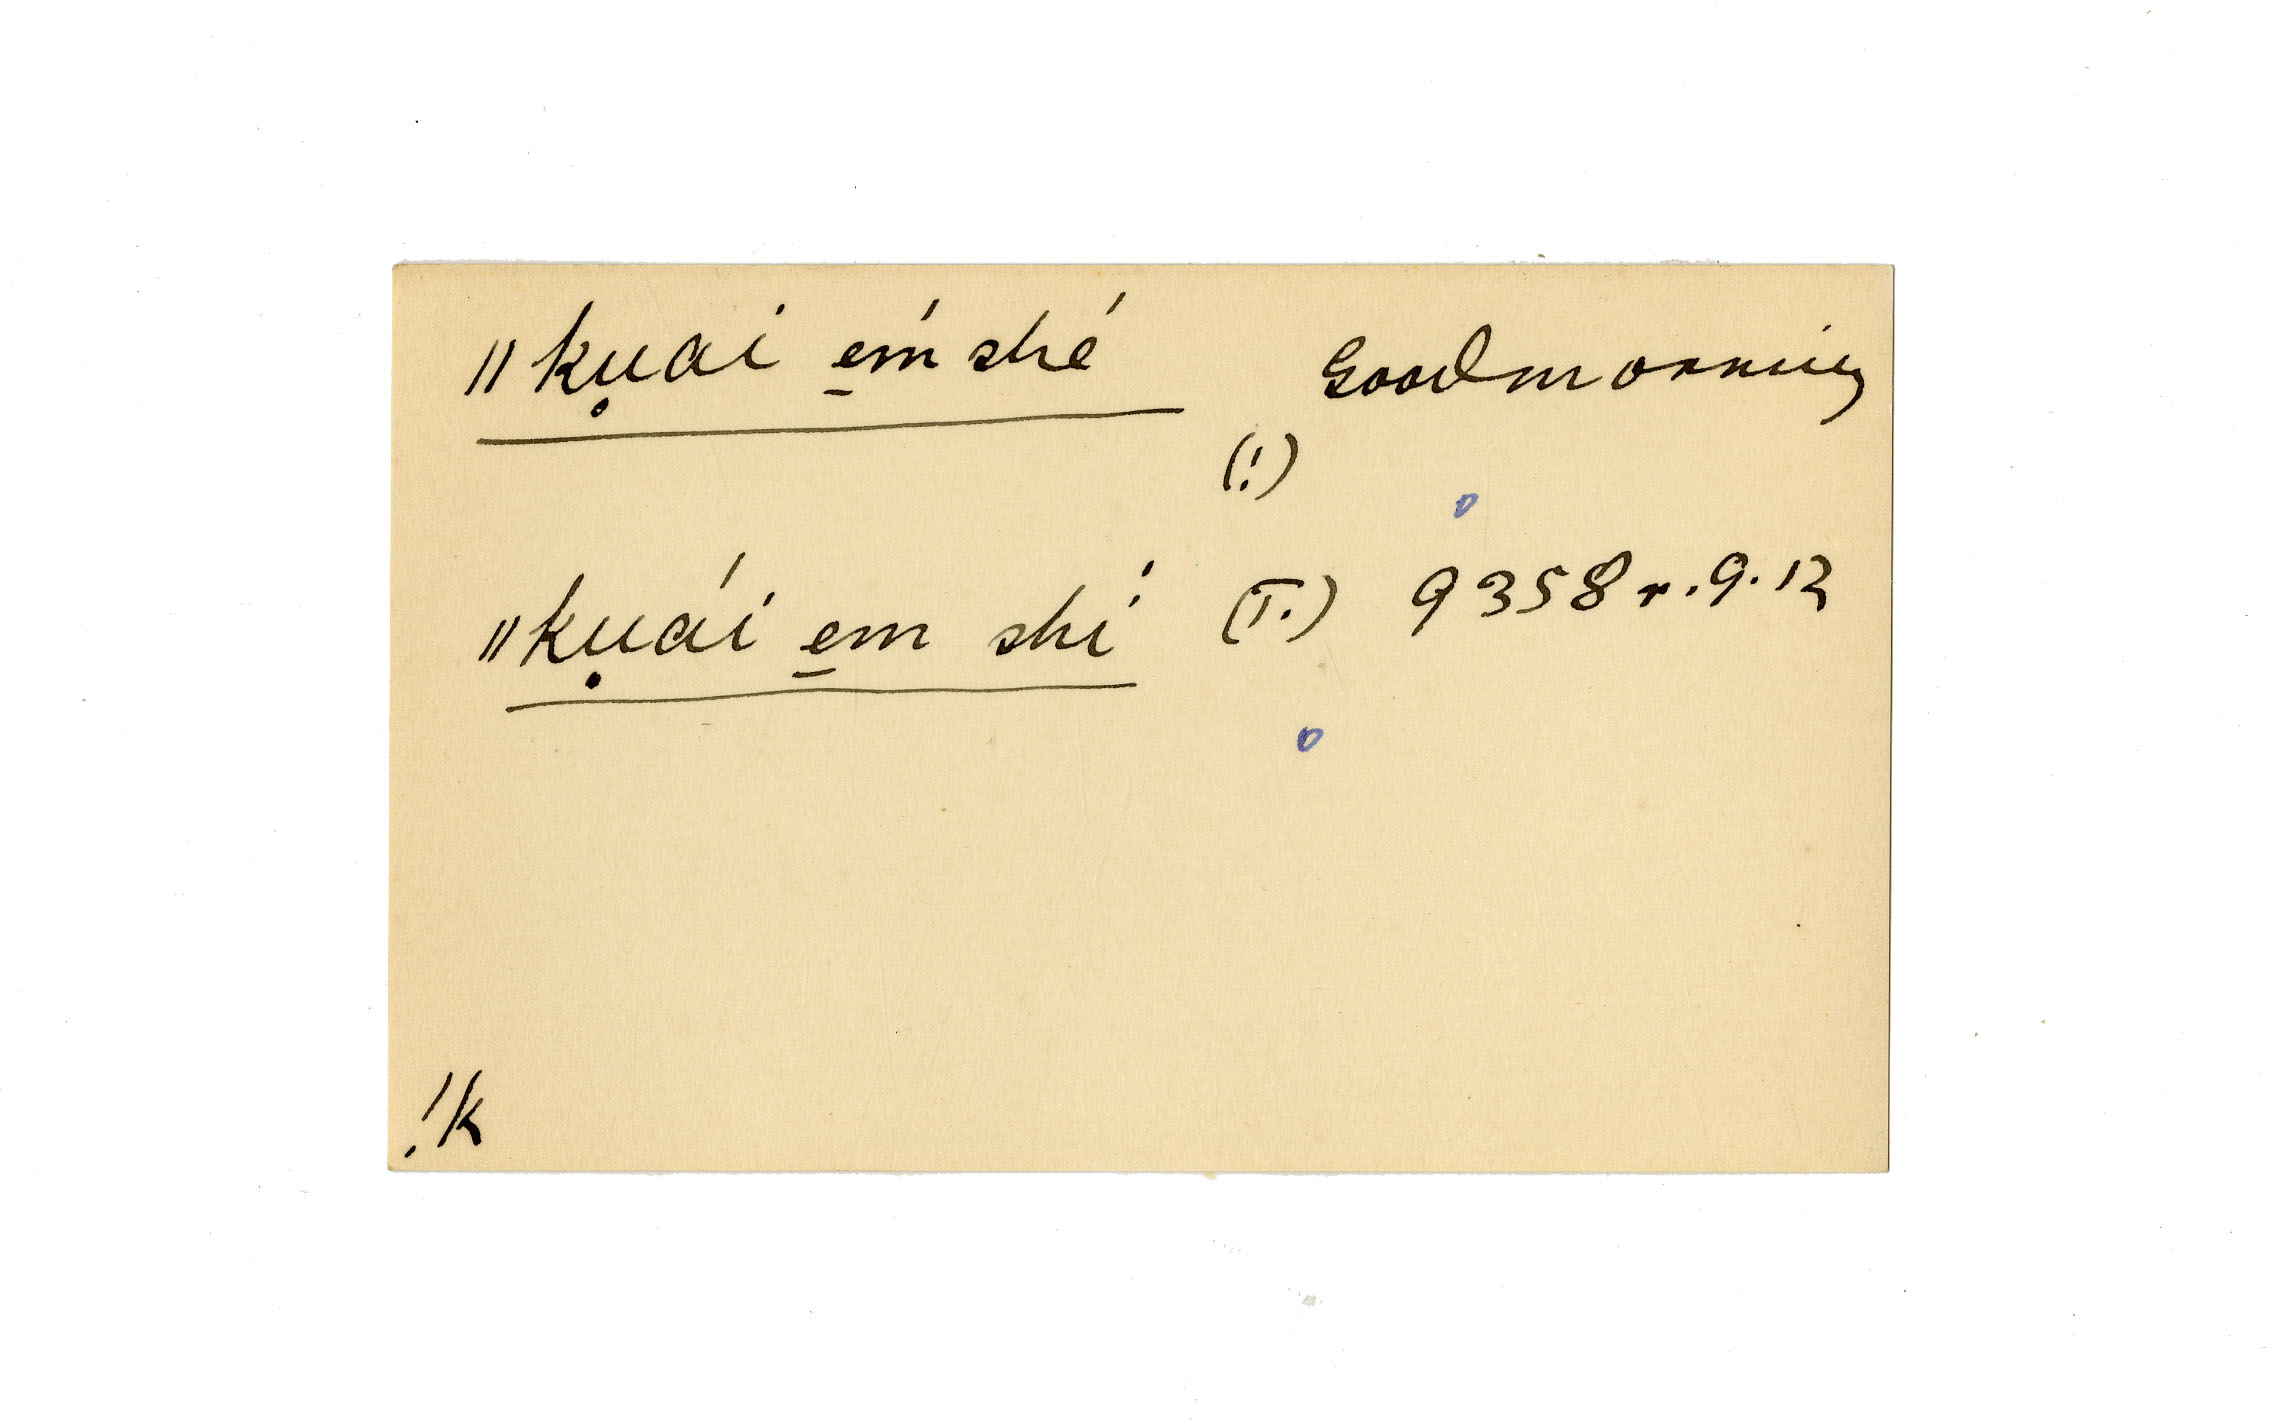 ǁkụai e̱ḿshé Goodmorning
(!)
ǁkụái e̱m shí (T.) 9358 r. 9.12
!k